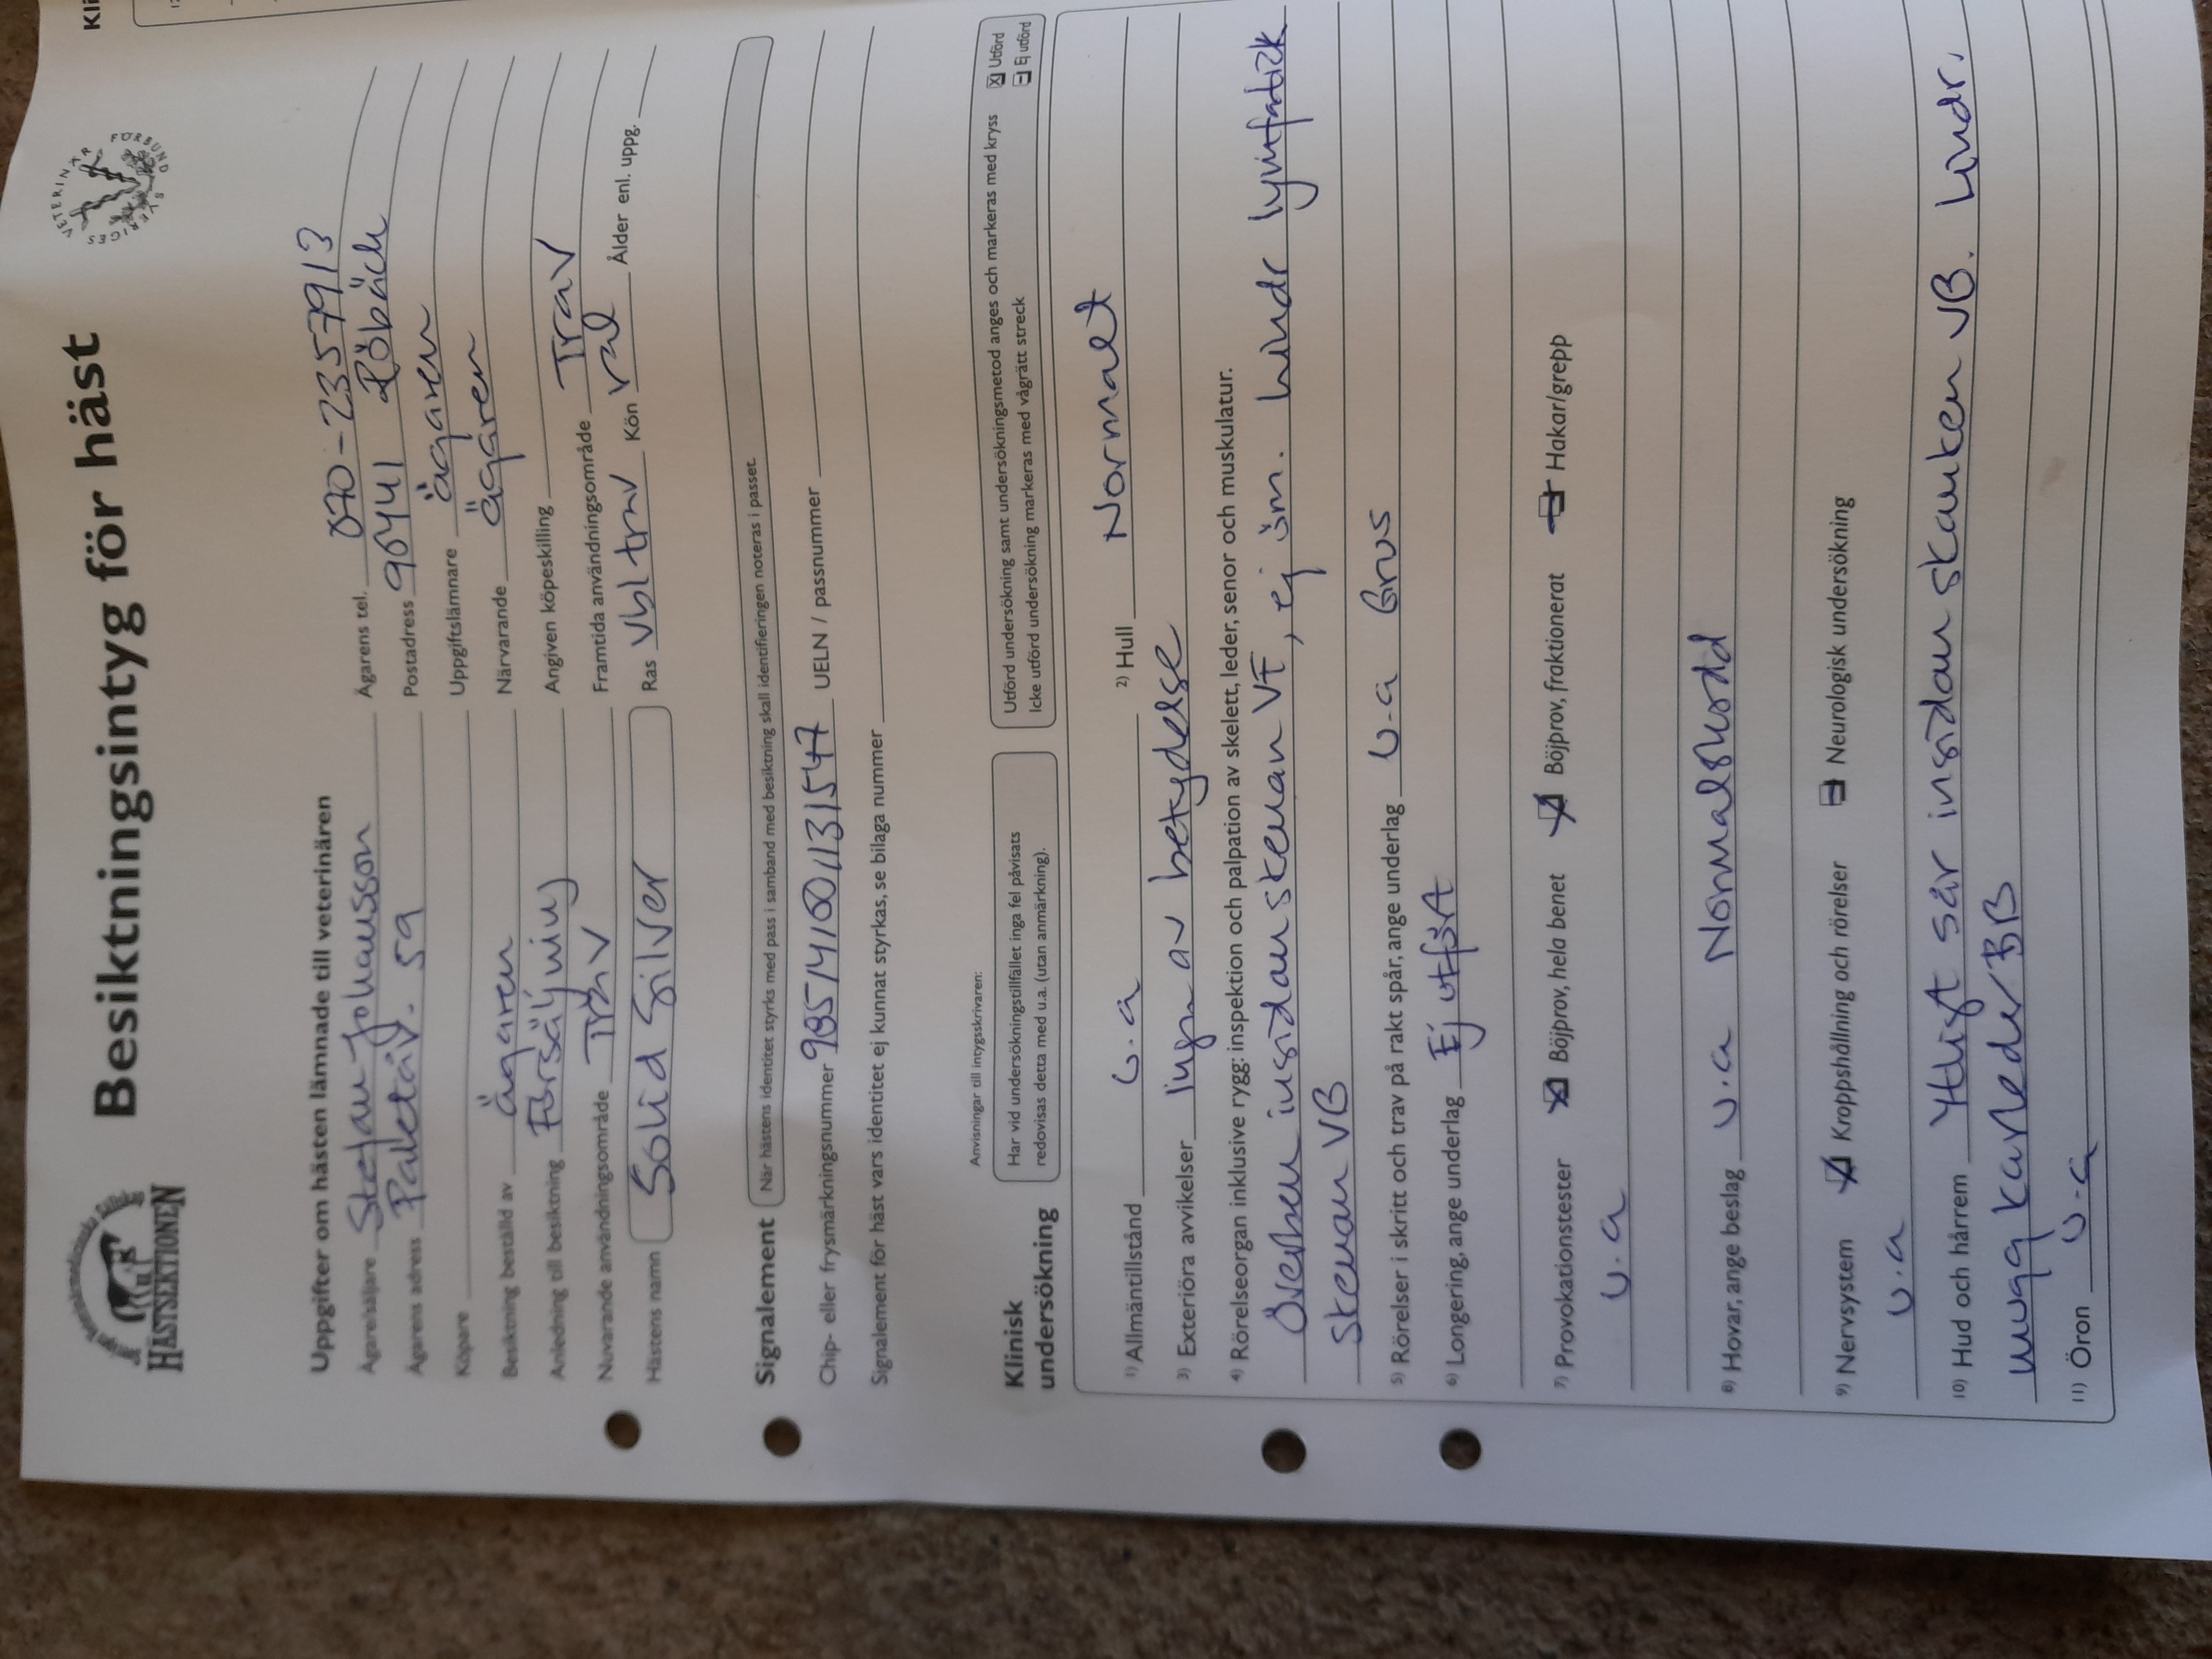 Besiktningsintyg för häst
HÄSTSEKTIONEN
SVERIGES VETERINÄR FÖRBUND
Uppgifter om hästen lämnade till veterinären
Ägare/säljare Stefan Johansson Ägarens tel. 070-2357913
Ägarens adress Paletäv. 59 Postadress 90441 Röbäck
Köpare Uppgiftslämnare ägaren
Besiktning beställd av ägaren Närvarande ägaren
Anledning till besiktning Försäljning Angiven köpeskilling
Nuvarande användningsområde Trav Framtida användningsområde Trav
Hästens namn Solid Silver Ras vbl trav Kön val Ålder enl. uppg.
Signalement När hästens identitet styrks med pass i samband med besiktning skall identifieringen noteras i passet.
Chip- eller frysmärkningsnummer UELN / passnummer
Signalement för häst vars identitet ej kunnat styrkas, se bilaga nummer
Anvisningar till intygsskrivaren:
Klinisk undersökning
Har vid undersökningstillfället inga fel påvisats
redovisas detta med u.a. (utan anmärkning).
Utförd undersökning samt undersökningsmetod anges och markeras med kryss Utförd
Icke utförd undersökning markeras med vågrätt streck Ej utförd
1) Allmäntillstånd u.a 2) Hull Normalt
3) Exteriöra avvikelser Inga av betydelse
4) Rörelseorgan inklusive rygg: inspektion och palpation av skelett, leder, senor och muskulatur.
insidan skenan VF, ej öm. Lindr
skenan VB
5) Rörelser i skritt och trav på rakt spår, ange underlag u.a Grus
6) Longering, ange underlag Ej utfört
7) Provokationstester Böjprov, hela benet Böjprov, fraktionerat Hakar/grepp
u.a
8) Hovar, ange beslag u.a Normalskodd
9) Nervsystem Kroppshållning och rörelser Neurologisk undersökning
u.a
10) Hud och hårrem Ytligt sår insidan skanken VB. Lindr.
mugg karleder BB
11) Öron u.a